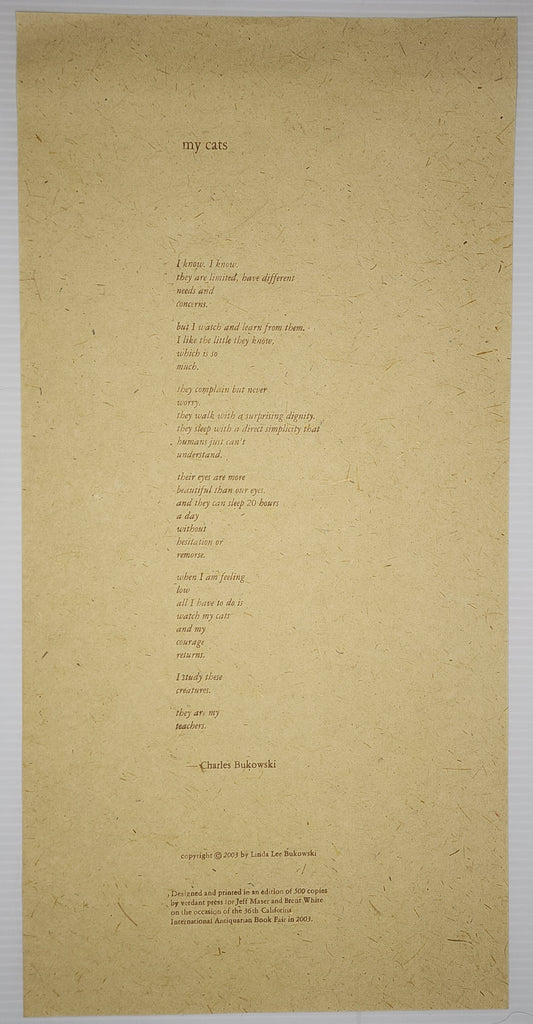 my cats
I know. I know.
they are limited, have different
needs and
concerns.
but I watch and learn from them.
I like the little they know,
which is so
much.
they complain but never
worry.
they walk with a surprising dignity.
they sleep with a direct simplicity that
humans just can't
understand.
their eyes are more
beautiful than our eyes.
and they can sleep 20 hours
a day
without
hesitation or
remorse.
when I am feeling
low
all I have to do is
watch my cats
and my
courage
returns.
I study these
creatures.
they are my
teachers.
— Charles Bukowski
copyright © 2003 by Linda Lee Bukowski
Designed and printed in an edition of 500 copies
by verdant press for Jeff Maser and Brent White
on the occasion of the 36th California
International Antiquarian Book Fair in 2003.